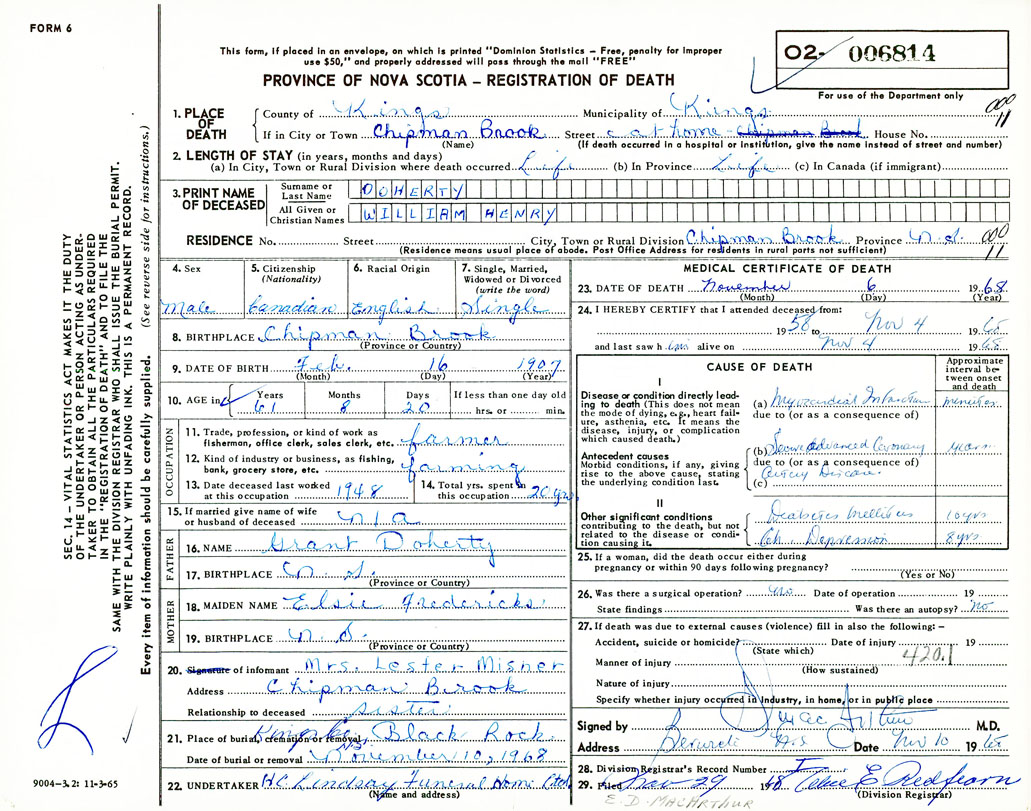 FORM 6
This form, if placed in an envelope, on which is printed "Dominion Statistics – Free, penalty for improper
use $50," and properly addressed will pass through the mail "FREE"
PROVINCE OF NOVA SCOTIA – REGISTRATION OF DEATH
02- 006814
For use of the Department only
000
11
1. PLACE OF DEATH County of Kings Municipality of Kings
If in City or Town Chipman Brook Street at home Chipman Brook House No.
(Name) (If death occurred in a hospital or institution, give the name instead of street and number)
2. LENGTH OF STAY (in years, months and days)
(a) In City, Town or Rural Division where death occurred Life (b) In Province Life (c) In Canada (if immigrant)
3. PRINT NAME OF DECEASED
Surname or Last Name DOHERTY
All Given or Christian Names WILLIAM HENRY
RESIDENCE No. Street City, Town or Rural Division Chipman Brook Province N.S.
(Residence means usual place of abode. Post Office Address for residents in rural parts not sufficient)
000
11
4. Sex Male
5. Citizenship (Nationality) Canadian
6. Racial Origin English
7. Single, Married, Widowed or Divorced (write the word) Single
8. BIRTHPLACE Chipman Brook
(Province or Country)
9. DATE OF BIRTH Feb. 16 1907
(Month) (Day) (Year)
10. AGE in Years 61 Months 8 Days 20 If less than one day old hrs. or min.
OCCUPATION
11. Trade, profession, or kind of work as fisherman, office clerk, sales clerk, etc. farmer
12. Kind of industry or business, as fishing, bank, grocery store, etc. farming
13. Date deceased last worked at this occupation 1948
14. Total yrs. spent in this occupation 20 yrs
15. If married give name of wife or husband of deceased n/a
FATHER
16. NAME Grant Doherty
17. BIRTHPLACE N.S.
(Province or Country)
MOTHER
18. MAIDEN NAME Elsie Fredericks
19. BIRTHPLACE N.S.
(Province or Country)
20. Signature of informant Mrs. Lester Misner
Address Chipman Brook
Relationship to deceased sister
21. Place of burial, cremation or removal Black Rock
Date of burial or removal November 10, 1968
22. UNDERTAKER HC Lindsay Funeral Home
(Name and address)
MEDICAL CERTIFICATE OF DEATH
23. DATE OF DEATH November 6 1968
(Month) (Day) (Year)
24. I HEREBY CERTIFY that I attended deceased from:
1958 to Nov 4 1968
and last saw him alive on Nov 4 1968
CAUSE OF DEATH
Approximate interval between onset and death
I
Disease or condition directly leading to death (This does not mean the mode of dying, e.g., heart failure, asthenia, etc. It means the disease, injury, or complication which caused death.)
(a) Myocardial Infarction minutes
due to (or as a consequence of)
Antecedent causes
Morbid conditions, if any, giving rise to the above cause, stating the underlying condition last.
(b) Severe Advanced Coronary years
due to (or as a consequence of)
Artery Disease
(c)
II
Other significant conditions contributing to the death, but not related to the disease or condition causing it.
Diabetes Mellitus 10 yrs
Ch. Depression 8 yrs
25. If a woman, did the death occur either during pregnancy or within 90 days following pregnancy?
(Yes or No)
26. Was there a surgical operation? No Date of operation 19
State findings Was there an autopsy? No
27. If death was due to external causes (violence) fill in also the following: –
Accident, suicide or homicide? Date of injury 19
(State which)
420.1
Manner of injury
(How sustained)
Nature of injury
Specify whether injury occurred in industry, in home, or in public place
Signed by M.D.
Address Berwick NS Date Nov 10 1968
28. Division Registrar's Record Number
29. Filed Nov 29 1968
(Division Registrar)
E.D. MACARTHUR
SEC. 14 – VITAL STATISTICS ACT MAKES IT THE DUTY
OF THE UNDERTAKER OR PERSON ACTING AS UNDER-
TAKER TO OBTAIN ALL THE PARTICULARS REQUIRED
IN THE "REGISTRATION OF DEATH" AND TO FILE THE
SAME WITH THE DIVISION REGISTRAR WHO SHALL ISSUE THE BURIAL PERMIT.
WRITE PLAINLY WITH UNFADING INK. THIS IS A PERMANENT RECORD.
Every item of information should be carefully supplied. (See reverse side for instructions.)
9004-3.2: 11-3-65